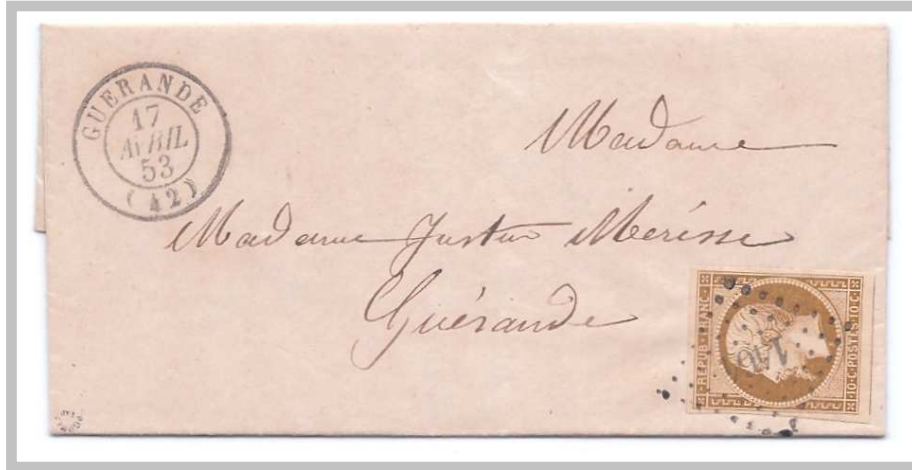 GUERANDE
17
AVRIL
53
(42)
Madame
Madame Justin Merisse
Guérande
REPUB FRANC
10 C POSTES 10 C